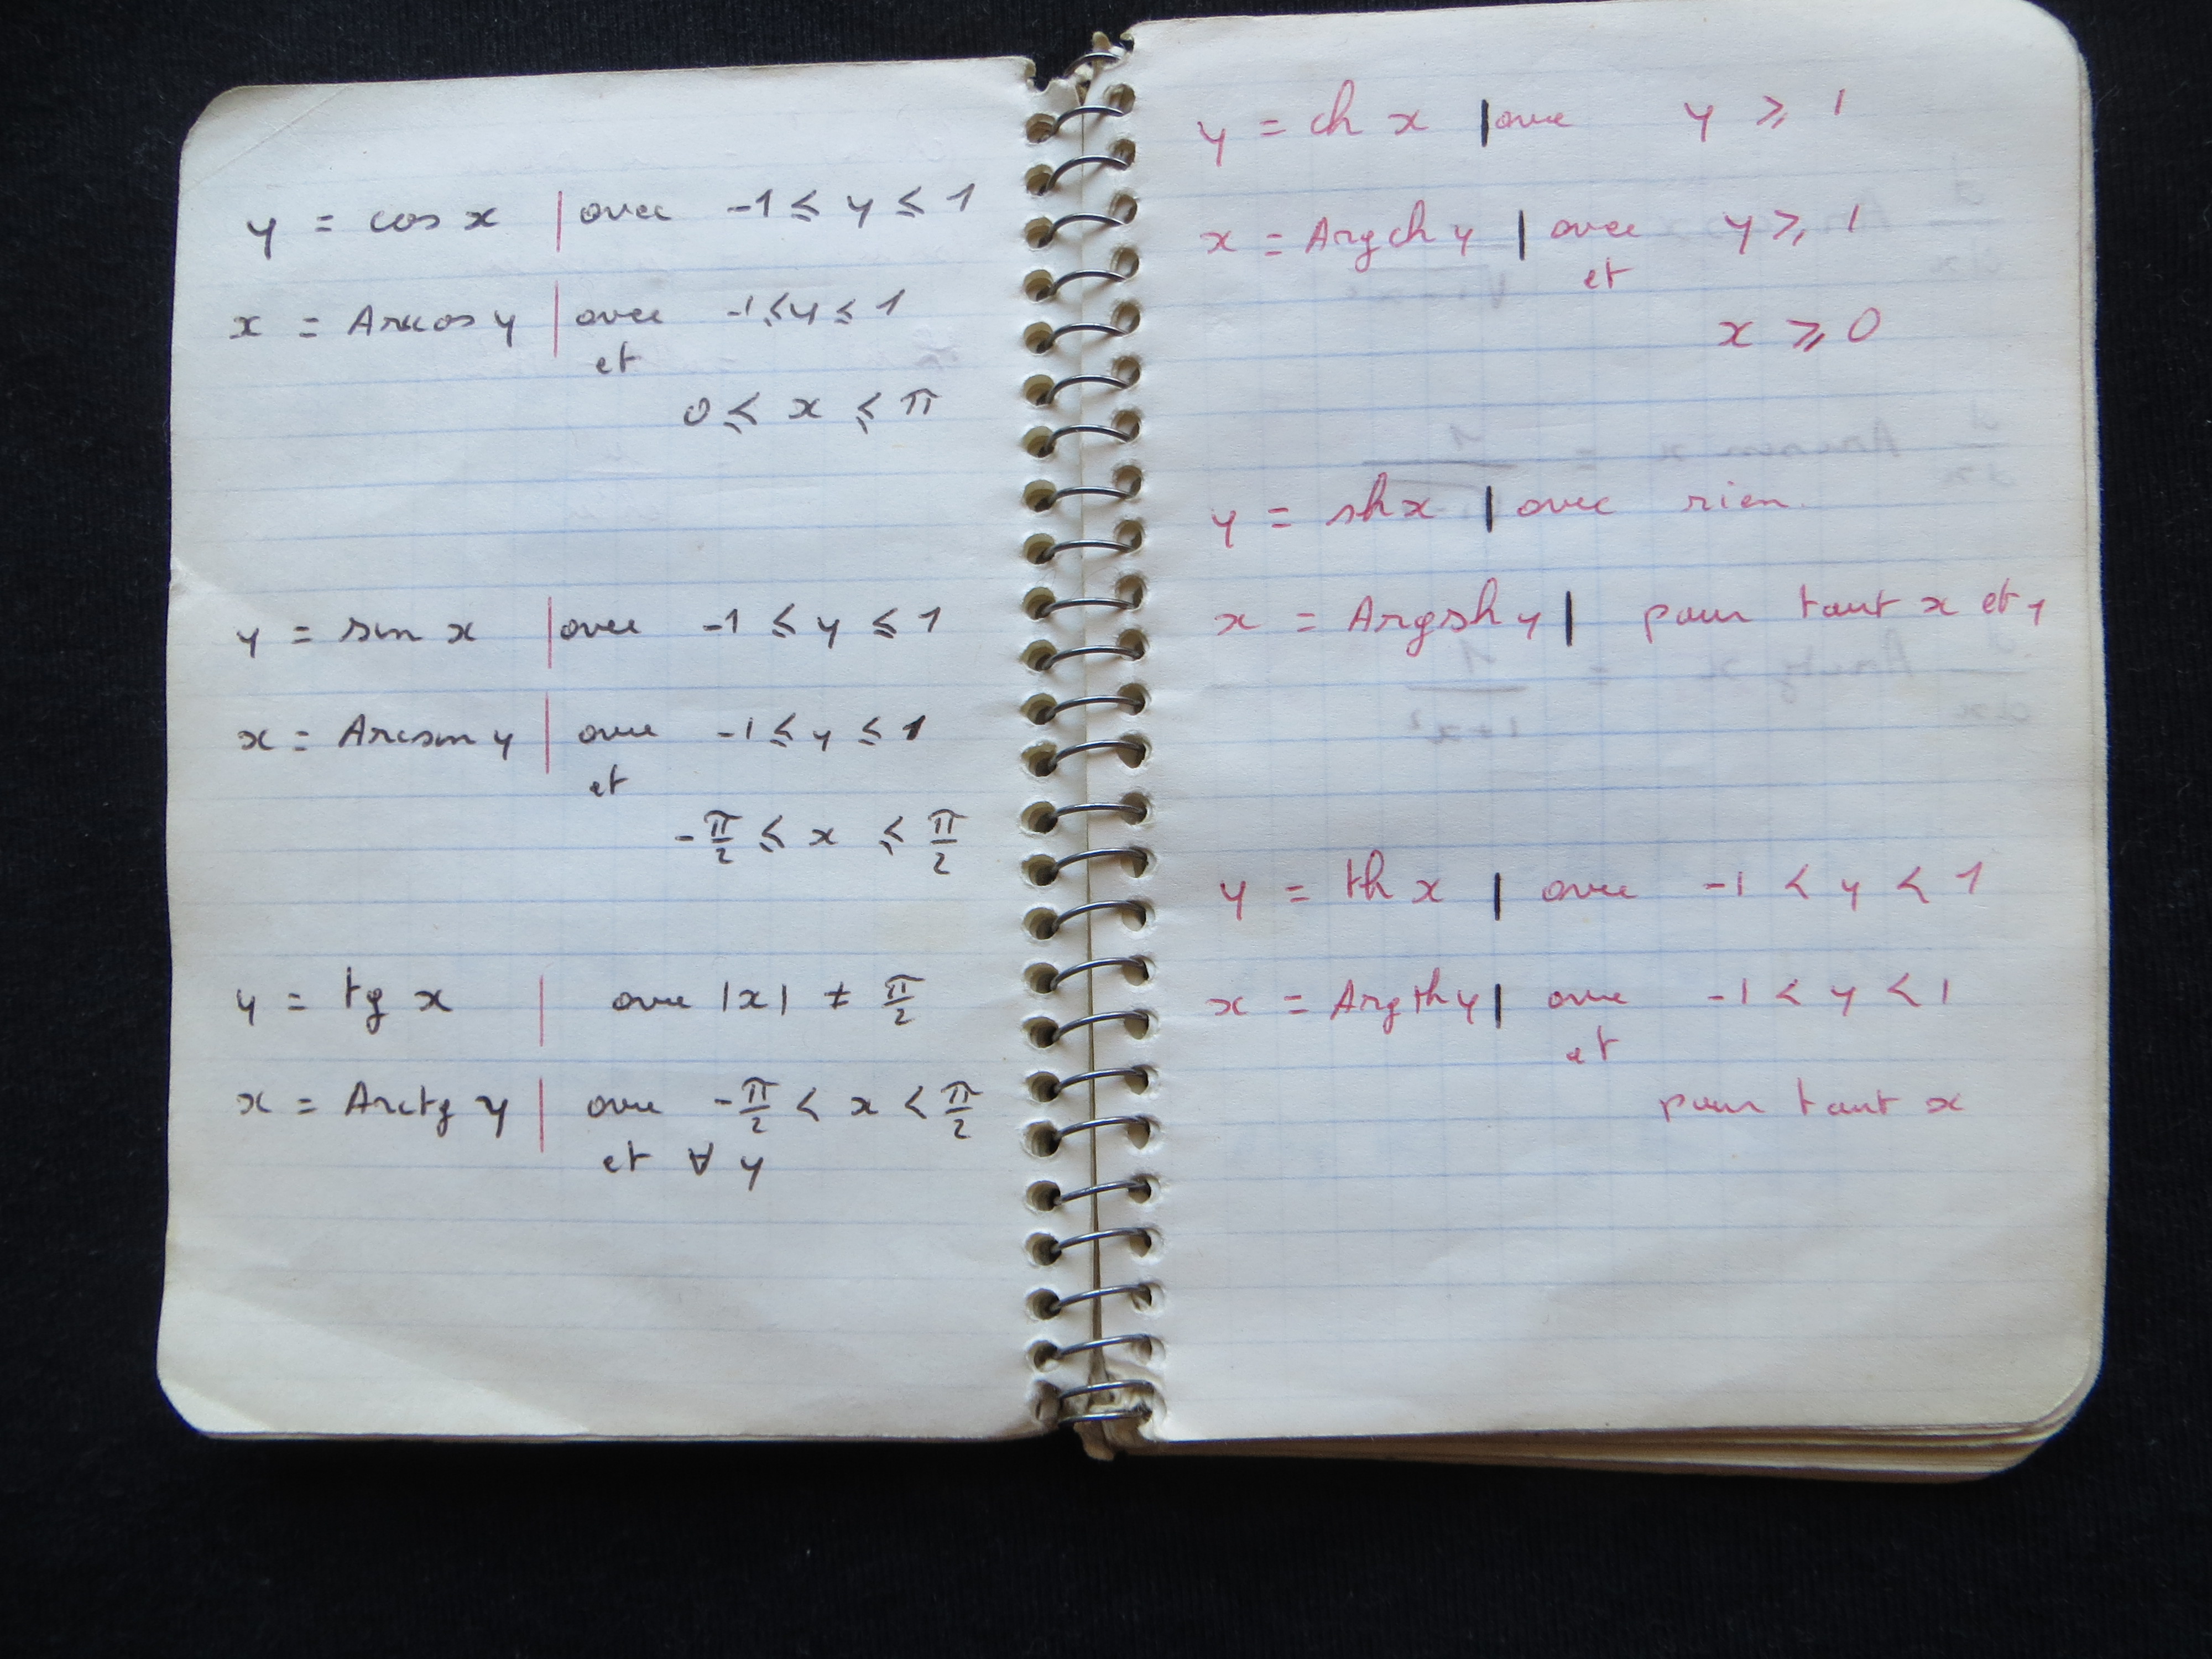 y = cos x | avec -1 ≤ y ≤ 1
x = Arccos y | avec -1 ≤ y ≤ 1
et
0 ≤ x ≤ π
y = sin x | avec -1 ≤ y ≤ 1
x = Arcsin y | avec -1 ≤ y ≤ 1
et
-π/2 ≤ x ≤ π/2
y = tg x | avec |x| ≠ π/2
x = Arctg y | avec -π/2 < x < π/2
et ∀ y
y = ch x | avec y ≥ 1
x = Argch y | avec y ≥ 1
et
x ≥ 0
y = sh x | avec rien.
x = Argsh y | pour tout x et y
y = th x | avec -1 < y < 1
x = Argth y | avec -1 < y < 1
et
pour tout x